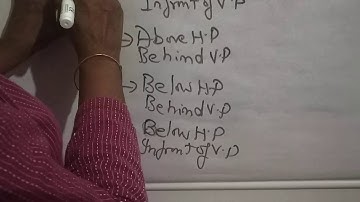 Infront of V.P
→ Above H.P
Behind V.P
→ Below H.P
Behind V.P
Below H.P
Infront of V.P